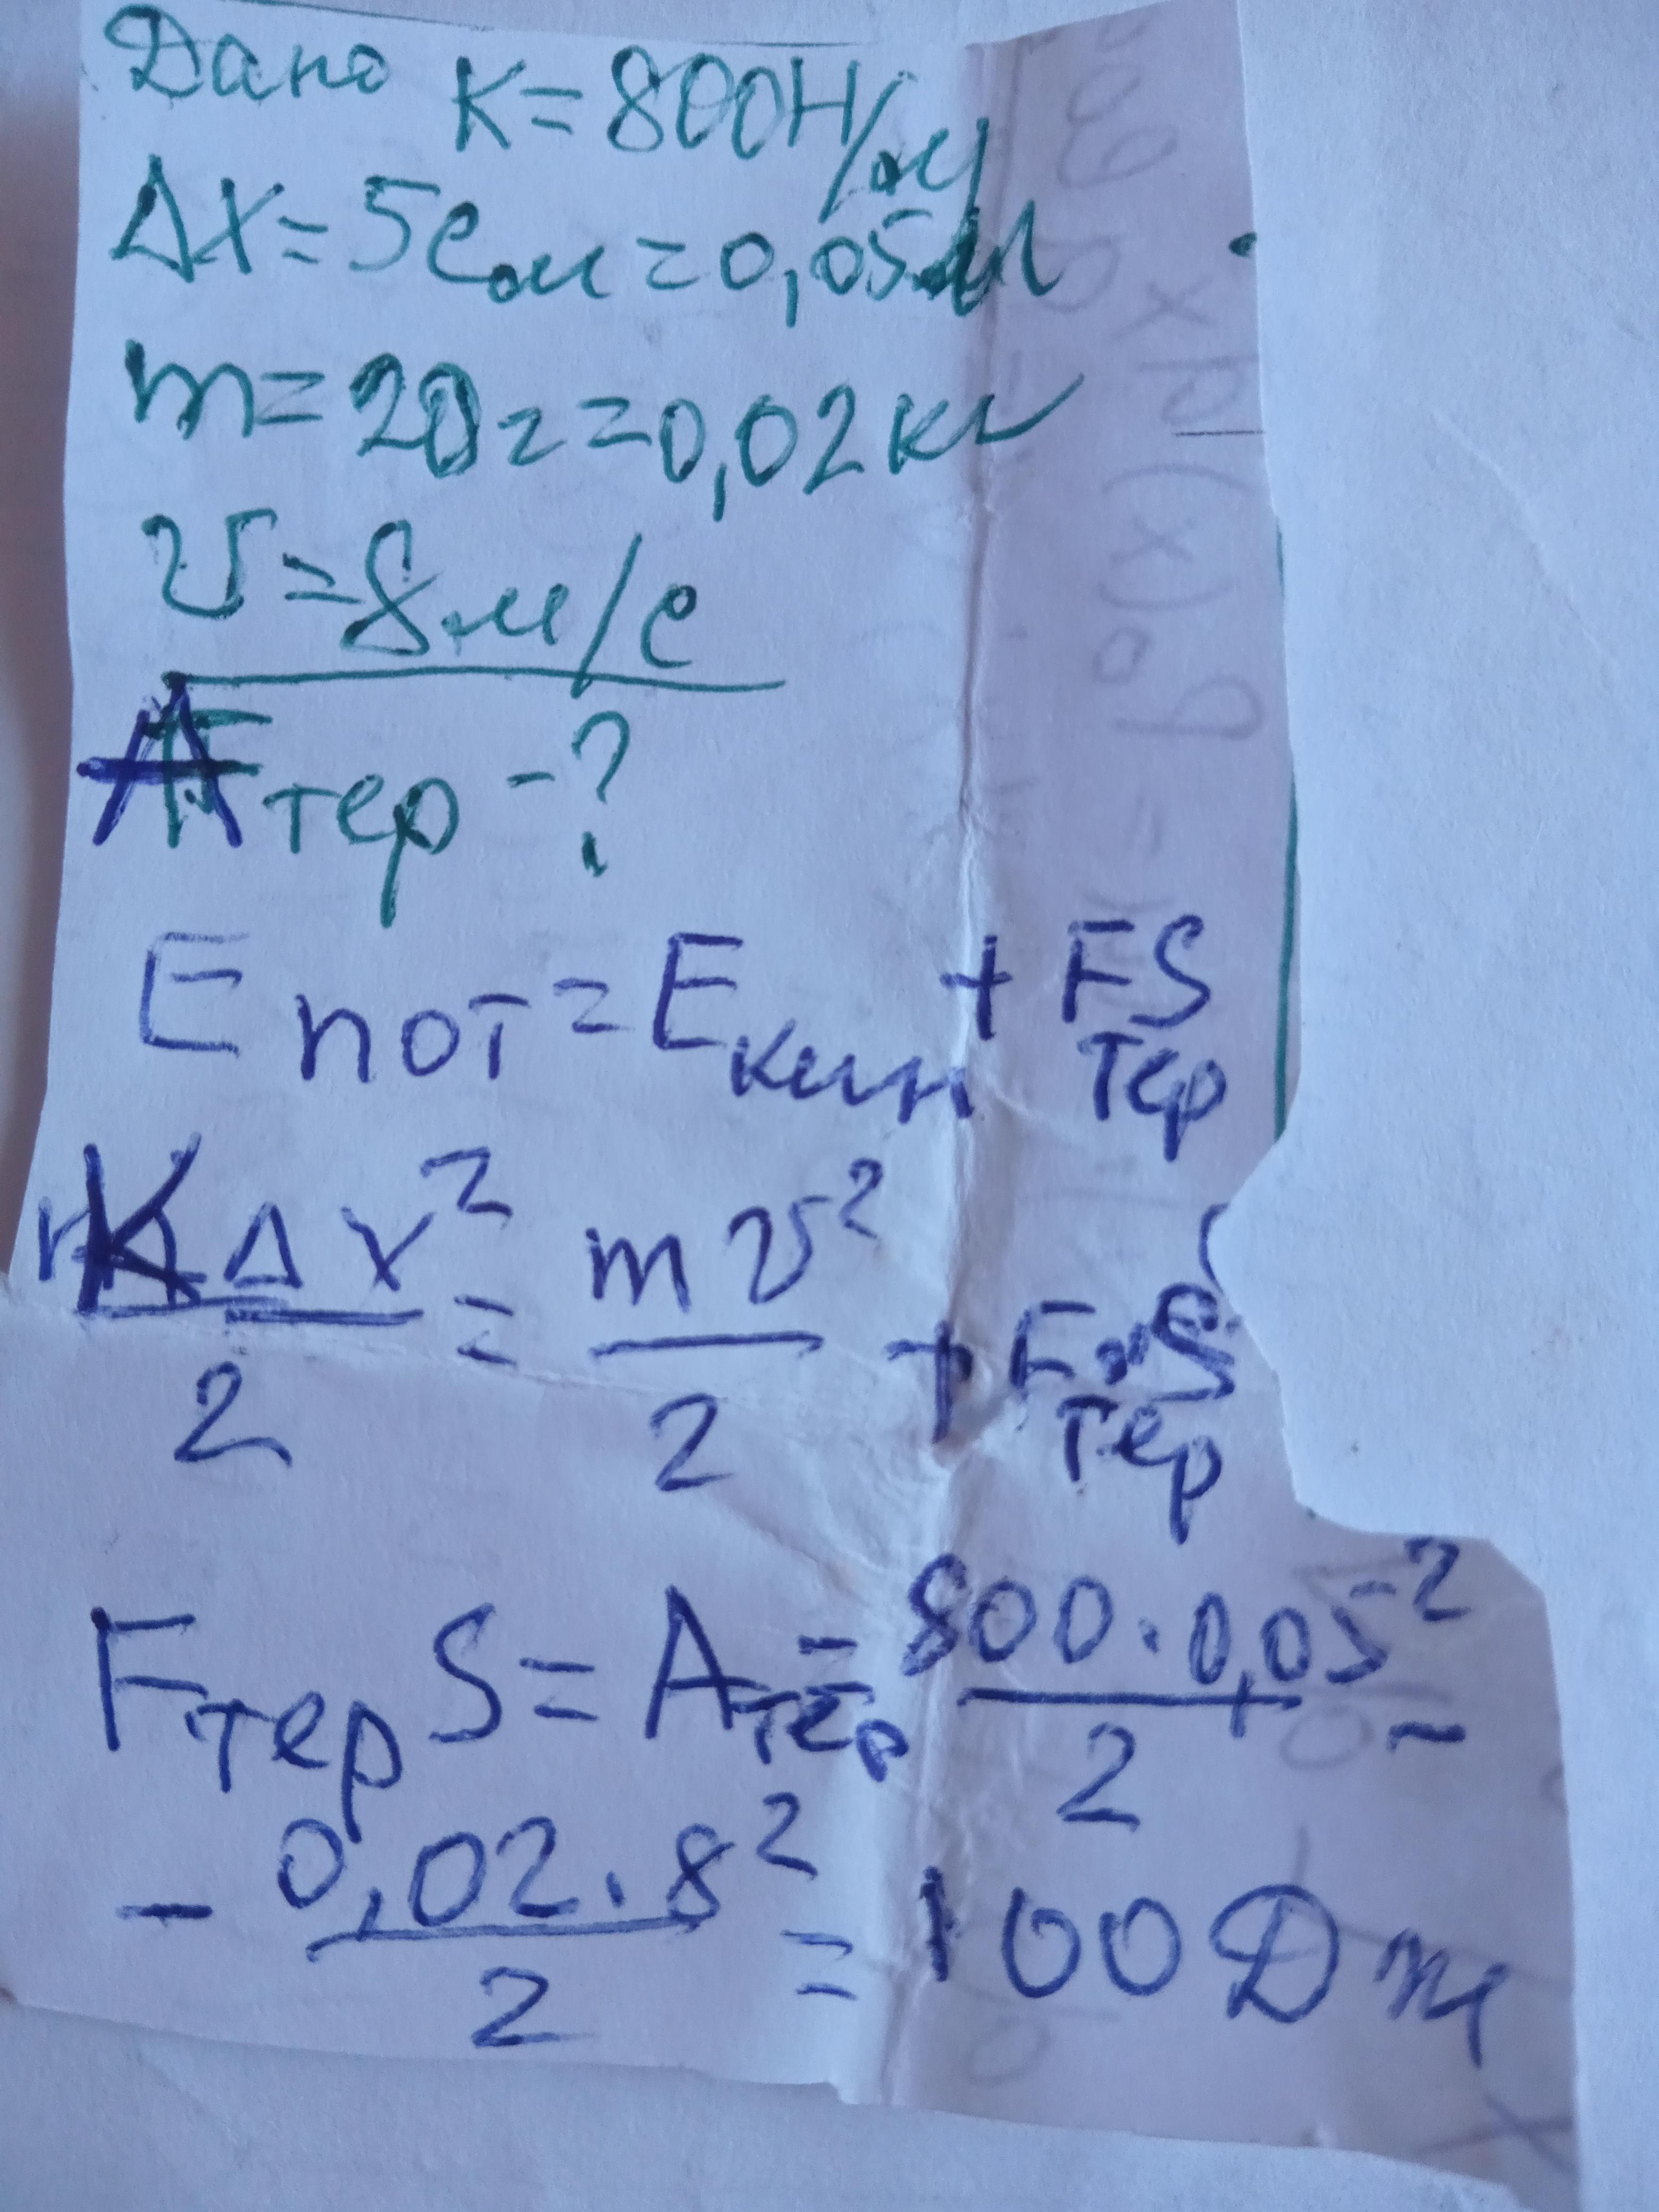 Дано K=800Н/м
Δx=5см=0,05м
m=20г=0,02кг
v=8м/с
Aтер-?
Eпот=Eкин+FтерS
KΔx²/2=mv²/2+FтерS
FтерS=Aтер=800·0,05²/2-
-0,02·8²/2=100Дж